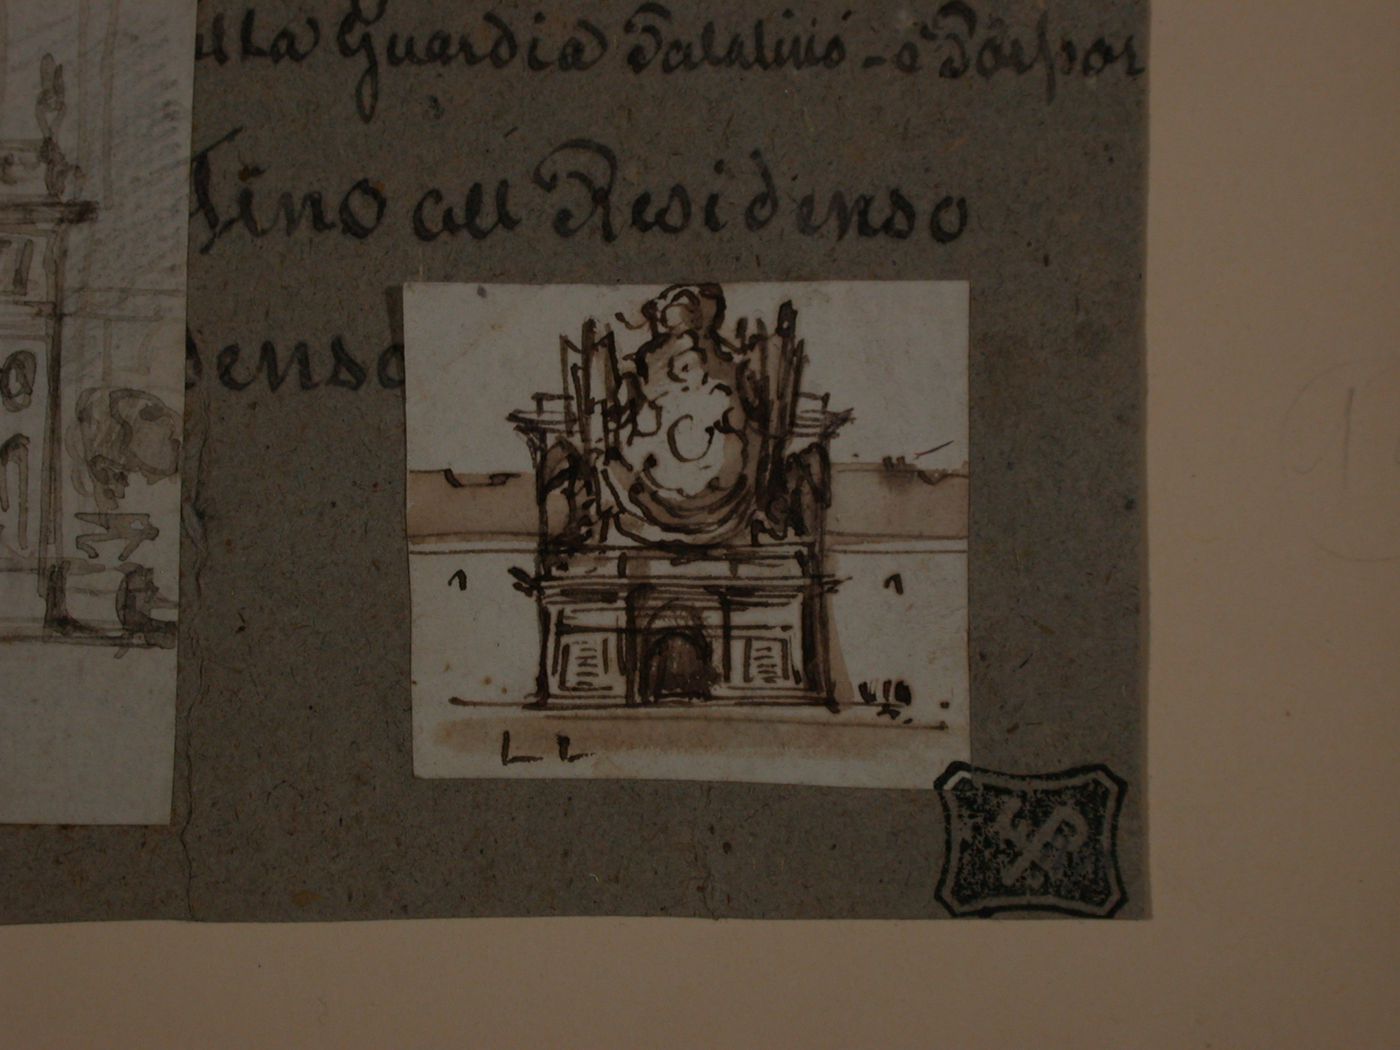 alla Guardia Palatino - e Por por
Fino all Residenso
denso
L L